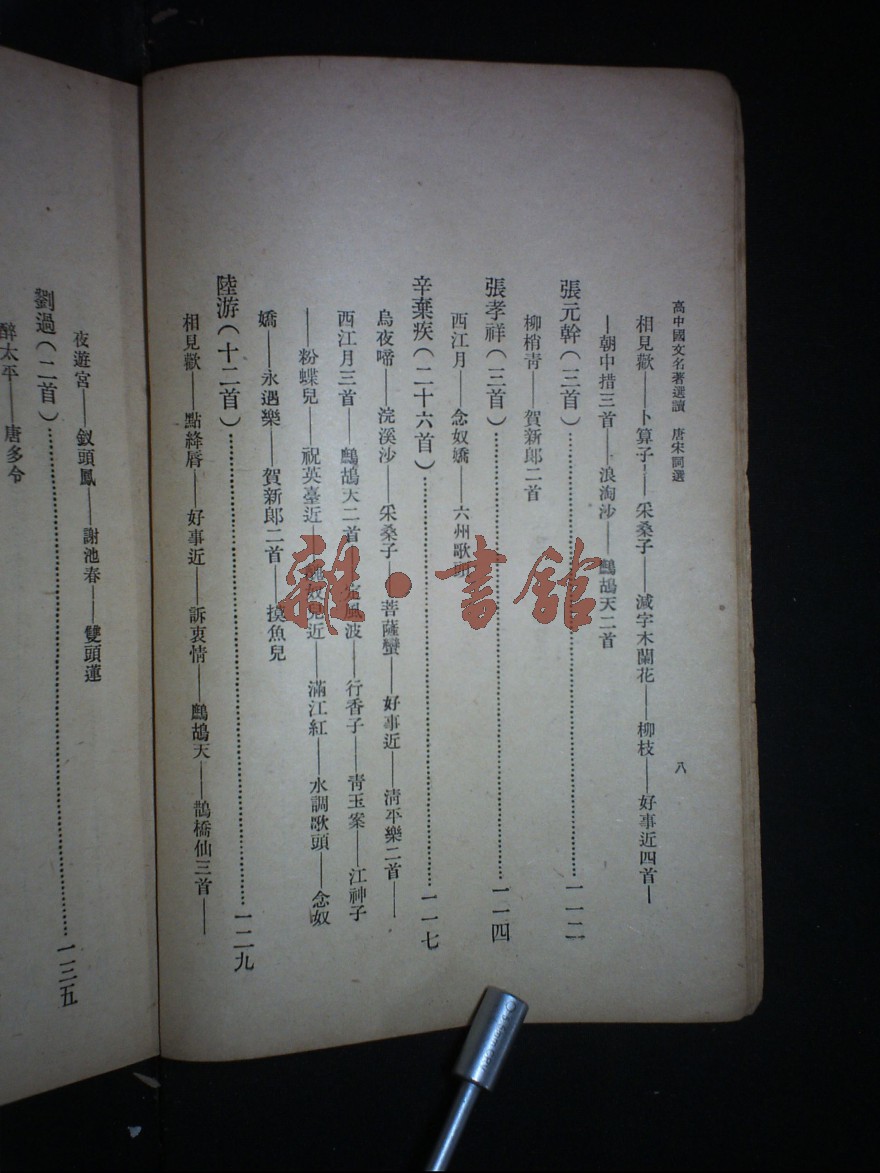 高中國文名著選讀　唐宋詞選
八
相見歡——卜算子——采桑子——減字木蘭花——柳枝——好事近四首—
—朝中措三首——浪淘沙——鷓鴣天二首
張元幹（三首）……一一二
柳梢青——賀新郎二首
張孝祥（三首）……一一四
西江月——念奴嬌——六州歌頭
辛棄疾（二十六首）……一一七
烏夜啼——浣溪沙——采桑子——菩薩蠻——好事近——清平樂二首——
西江月三首——鷓鴣天二首——定風波——行香子——青玉案——江神子
——粉蝶兒——祝英臺近——奴兒近——滿江紅——水調歌頭——念奴
嬌——永遇樂——賀新郎二首——摸魚兒
陸游（十二首）……一二九
相見歡——點絳唇——好事近——訴衷情——鷓鴣天——鵲橋仙三首——
夜遊宮——釵頭鳳——謝池春——雙頭蓮
劉過（二首）……一三五
醉太平——唐多令
雜·書館